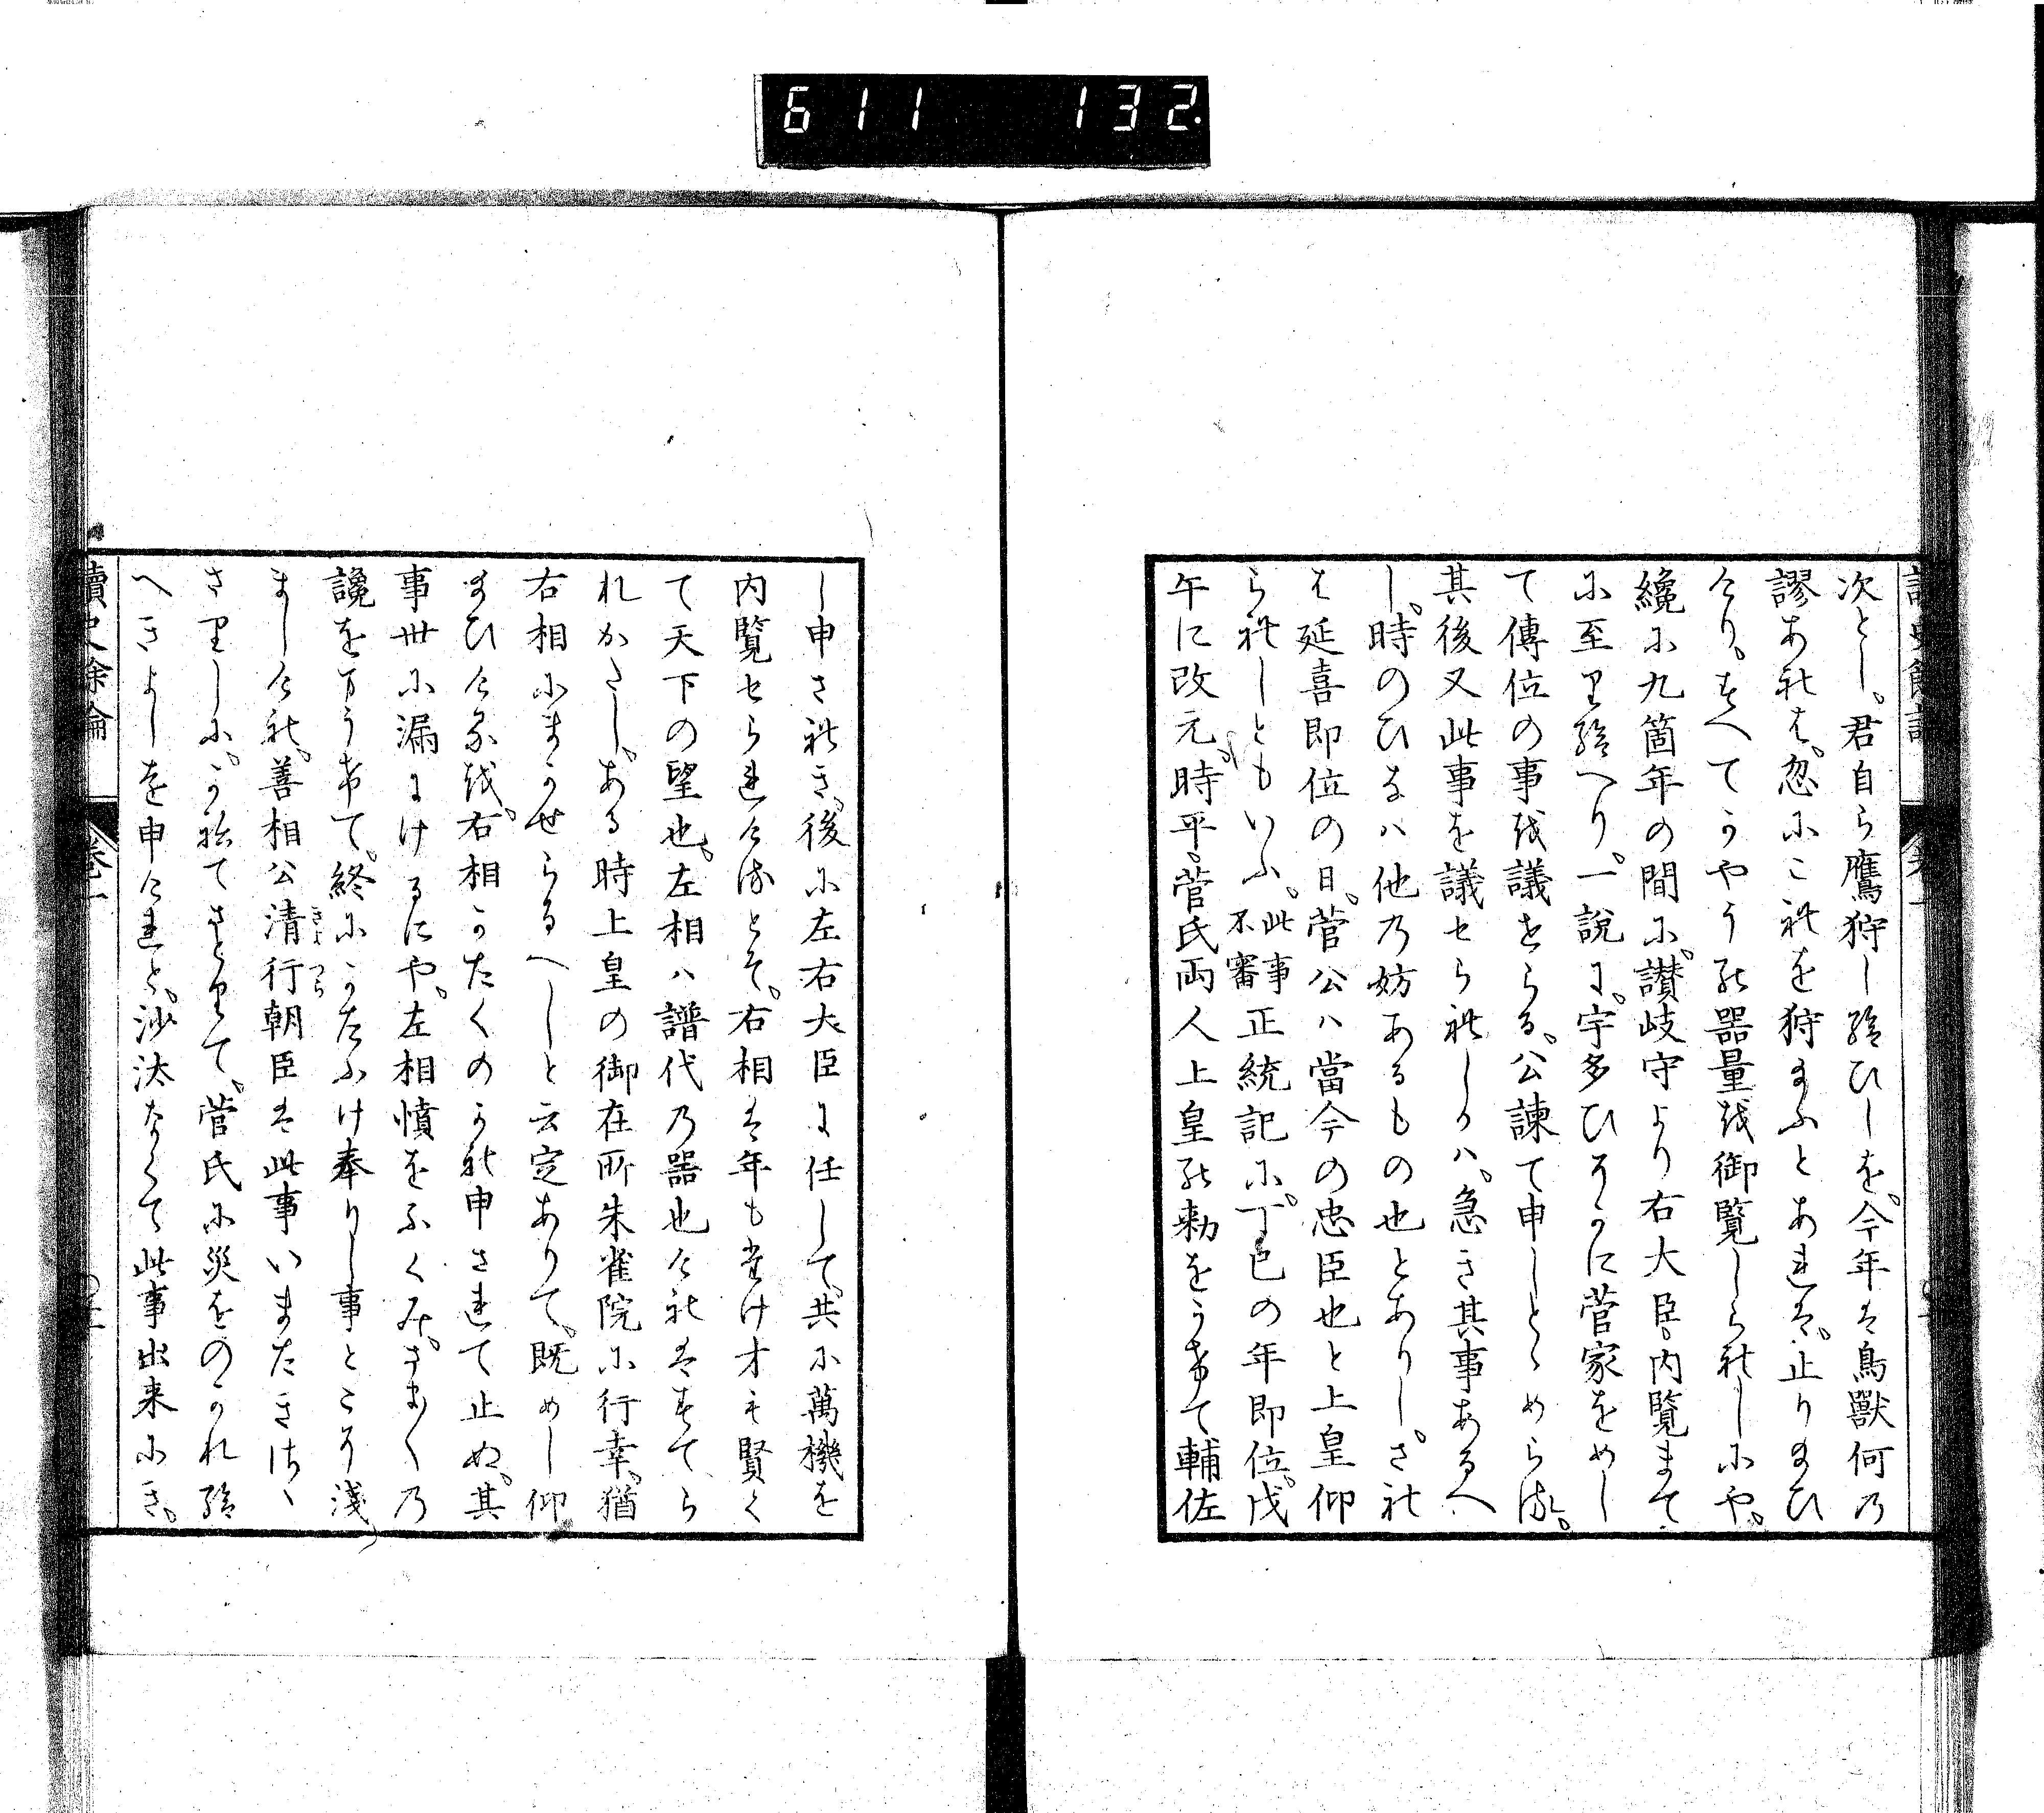 611 132
次とし。君自ら鷹狩し給ひしを。今年は鳥獣何の
謬あれは。忽にこれを狩給ふとあれは。止り給ひ
たり。すへてかやうの器量を御覧しられしにや。
纔に九箇年の間に。讃岐守より右大臣。内覧まて
に至り給へり。一説に。宇多ひそかに菅家をめし
て傳位の事を議せらる。公諫て申しとゝめらる。
其後又此事を議せられしかハ。急き其事あるへ
し。時のひるハ他の妨あるもの也とありし。され
は延喜即位の日。菅公ハ當今の忠臣也と上皇仰
られしともいふ。此事不審正統記に。丁巳の年即位。戊
午に改元。時平。菅氏両人上皇の勅をうけて輔佐
し申されき。後に左右大臣に任して。共に萬機を
内覧せられけるとそ。右相は年もたけ才も賢く
て天下の望也。左相ハ譜代の器也けれはすてら
れかたし。ある時上皇の御在所朱雀院に行幸。猶
右相にまかせらるへしと云定ありて。既めし仰
給ひけるを。右相かたくのかれ申されて止ぬ。其
事世に漏にけるにや。左相憤をふくみ。さま〱の
讒をまうけて。終にかたふけ奉りし事ところ淺
ましけれ。善相公清行朝臣は此事いまたきさゝ
さりしに。かねてさとりて。菅氏に災をのかれ給
へきよしを申けれと。沙汰なくて此事出来にき。
讀史餘論 巻一